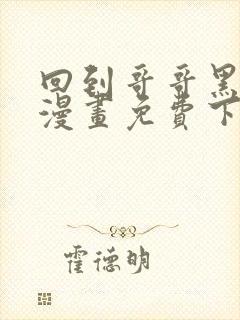 回到哥哥黑
漫畫免費下
霍德明